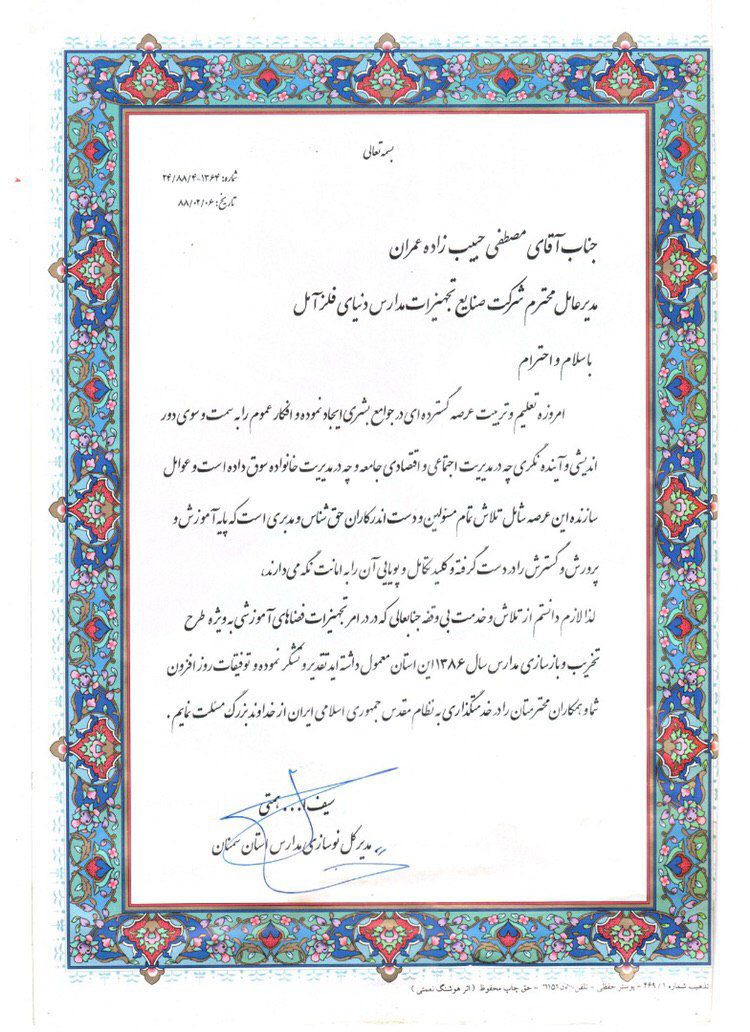 بسمه تعالی
شماره: ۱۳۶۴-۲۴/۸۸/۴
تاریخ: ۸۸/۰۲/۰۶
جناب آقای مصطفی حبیب زاده عمران
مدیرعامل محترم شرکت صنایع تجهیزات مدارس دنیای فلز آمل
با سلام و احترام
امروزه تعلیم و تربیت عرصه گسترده ای در جوامع بشری ایجاد نموده و افکار عموم را به سمت و سوی دور
اندیشی و آینده نگری چه در مدیریت اجتماعی و اقتصادی جامعه و چه در مدیریت خانواده سوق داده است و عوامل
سازنده این عرصه شامل تلاش تمام مسئولین و دست اندرکاران حق شناس و مدبری است که پایه آموزش و
پرورش و گسترش را در دست گرفته و کلید تکامل و پویایی آن را به امانت نگه می دارند،
لذا لازم دانستم از تلاش و خدمت بی وقفه جنابعالی که در در امر تجهیزات فضاهای آموزشی به ویژه طرح
تخریب و بازسازی مدارس سال ۱۳۸۶ این استان معمول داشته اید تقدیر و تشکر نموده و توفیقات روز افزون
شما و همکاران محترمتان را در خدمتگذاری به نظام مقدس جمهوری اسلامی ایران از خداوند بزرگ مسئلت نمایم.
سیف ا... همتی
مدیر کل نوسازی مدارس استان سمنان
تذهیب شماره ۱/۲۶۹ - پوستر حفظی - تلفن: - حق چاپ محفوظ (اثر هوشنگ نعمتی)